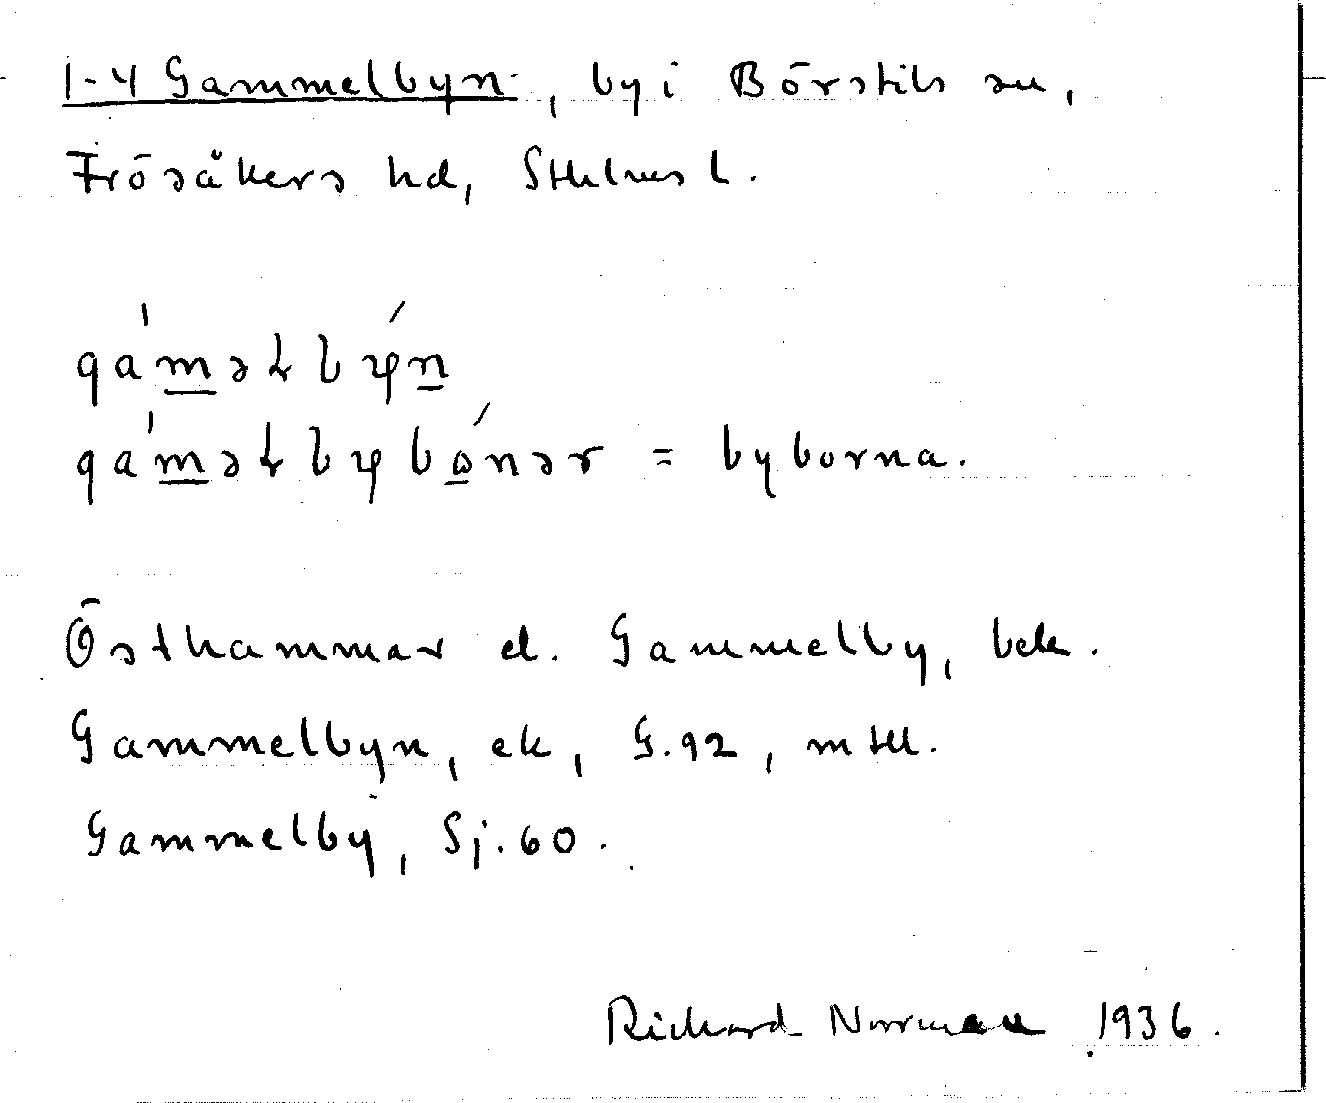 1-4 Gammelbyn, by i Börstils sn,
Frösåkers hd, Sthlms l.
gáməɫbýn
gáməɫbybǿnər = byborna.
Östhammar el. Gammelby, bek.
Gammelbyn, ek, G.92, mtl.
Gammelby, Sj.60.
Richard Norrman 1936.